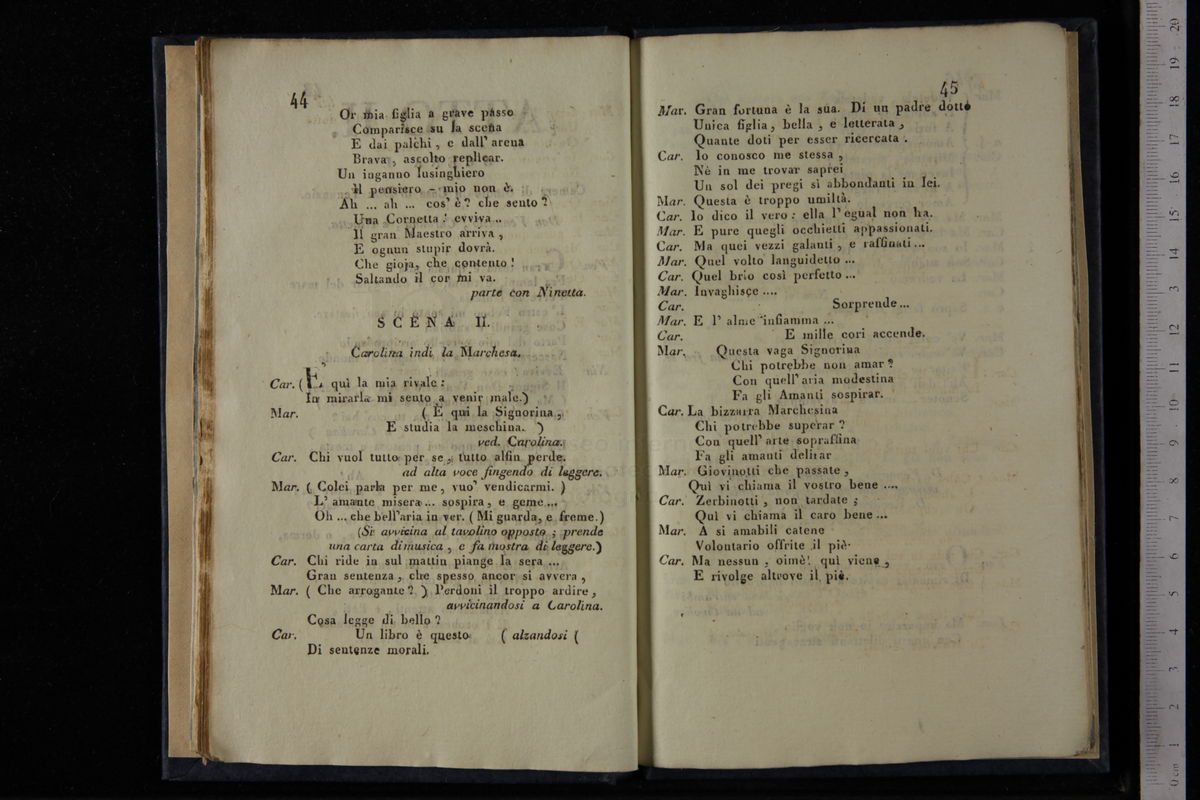 44
Or mia figlia a grave passo
Comparisce su la scena
E dai palchi, e dall' arena
Brava, ascolto replicar.
Un inganno lusinghiero
Il pensiero - mio non è.
Ah ... ah ... cos' è? che sento?
Una Cornetta! evviva..
Il gran Maestro arriva,
E ognun stupir dovrà.
Che gioja, che contento!
Saltando il cor mi va.
parte con Ninetta.
SCENA II.
Carolina indi la Marchesa.
Car. (E' quì la mia rivale:
In mirarla mi sento a venir male.)
Mar. (E quì la Signorina,
E studia la meschina. )
ved. Carolina.
Car. Chi vuol tutto per se, tutto alfin perde.
ad alta voce fingendo di leggere.
Mar. ( Colei parla per me, vuo' vendicarmi. )
L' amante misera ... sospira, e geme ...
Oh ... che bell'aria in ver. (Mi guarda, e freme.)
(Si avvicina al tavolino opposto ; prende
una carta di musica, e fa mostra di leggere.)
Car. Chi ride in sul mattin piange la sera ...
Gran sentenza, che spesso ancor si avvera,
Mar. ( Che arrogante? ) Perdoni il troppo ardire,
avvicinandosi a Carolina.
Cosa legge di bello?
Car. Un libro è questo ( alzandosi (
Di sentenze morali.
45
Mar. Gran fortuna è la sua. Di un padre dotto
Unica figlia, bella, e letterata,
Quante doti per esser ricercata.
Car. Io conosco me stessa,
Nè in me trovar saprei
Un sol dei pregi sì abbondanti in lei.
Mar. Questa è troppo umiltà.
Car. Io dico il vero: ella l'egual non ha.
Mar. E pure quegli occhietti appassionati.
Car. Ma quei vezzi galanti, e raffinati ...
Mar. Quel volto languidetto ...
Car. Quel brio così perfetto ...
Mar. Invaghisce ....
Car. Sorprende ...
Mar. E l' alme infiamma ...
Car. E mille cori accende.
Mar. Questa vaga Signorina
Chi potrebbe non amar?
Con quell'aria modestina
Fa gli Amanti sospirar.
Car. La bizzarra Marchesina
Chi potrebbe superar?
Con quell' arte sopraffina
Fa gli amanti delirar
Mar. Giovinotti che passate,
Quì vi chiama il vostro bene ....
Car. Zerbinotti, non tardate ;
Quì vi chiama il caro bene ...
Mar. A sì amabili catene
Volontario offrite il piè.
Car. Ma nessun, oimè! quì viene,
E rivolge altrove il piè.